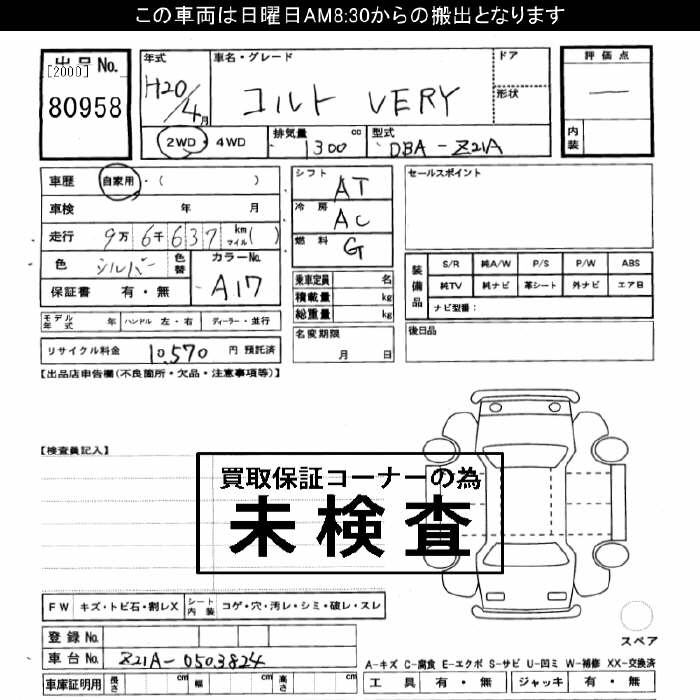 この車両は日曜日AM8:30からの搬出となります
出品No.
[2000]
80958
年式
H20/4月
車名・グレード
コルト VERY
ドア
形状
評価点
—
内装
2WD・4WD
排気量 cc
1300
型式
DBA-Z21A
車歴 自家用・( )
車検 年 月
走行 9万6千637 km マイル( )
色 シルバー 色替
カラーNo.
A17
保証書 有・無
モデル年式 年 ハンドル 左・右 ディーラー・並行
リサイクル料金 10,570 円 預託済
シフト AT
冷房 AC
燃料 G
乗車定員 名
積載量 kg
総重量 kg
名変期限
月 日
セールスポイント
装備品
S/R 純A/W P/S P/W ABS
純TV 純ナビ 革シート 外ナビ エアB
ナビ型番：
後日品
【出品店申告欄(不良箇所・欠品・注意事項等)】
【検査員記入】
買取保証コーナーの為
未検査
FW キズ・トビ石・割レX シート内装 コゲ・穴・汚レ・シミ・破レ・スレ
登録No.
車台No. Z21A-0503824
車庫証明用 長さ cm 幅 cm 高さ cm
スペア
A-キズ C-腐食 E-エクボ S-サビ U-凹ミ W-補修 XX-交換済
工具 有・無 ジャッキ 有・無